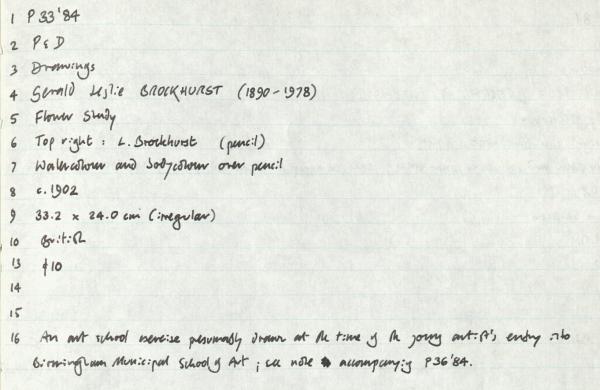 1 P33'84
2 P & D
3 Drawings
4 Gerald Leslie BROCKHURST (1890-1978)
5 Flower Study
6 Top right: L. Brockhurst (pencil)
7 Watercolour and bodycolour over pencil
8 c.1902
9 33.2 x 24.0 cm (irregular)
10 British
13 10
14
15
16 An art school exercise presumably drawn at the time of the young artist's entry into
Birmingham Municipal School of Art; see note accompanying P36'84.